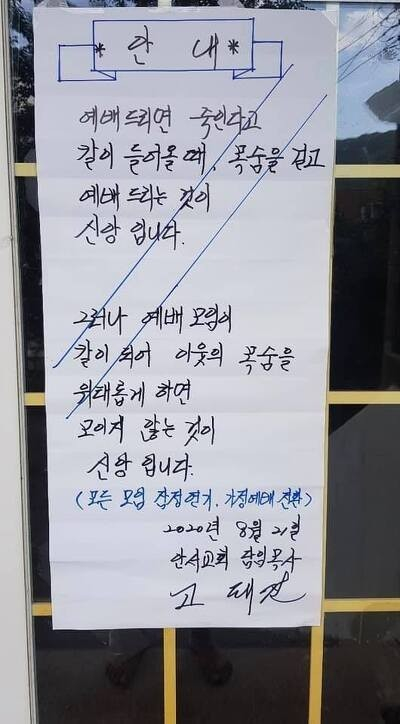 * 안 내 *
예배드리면 죽인다고
칼이 들어올 때, 목숨을 걸고
예배드리는 것이
신앙입니다.
그러나 예배 모임이
칼이 되어 이웃의 목숨을
위태롭게 하면
모이지 않는 것이
신앙입니다.
(모든 모임 잠정연기, 가정예배 전환)
2020년 8월 21일
안서교회 담임목사
고태진